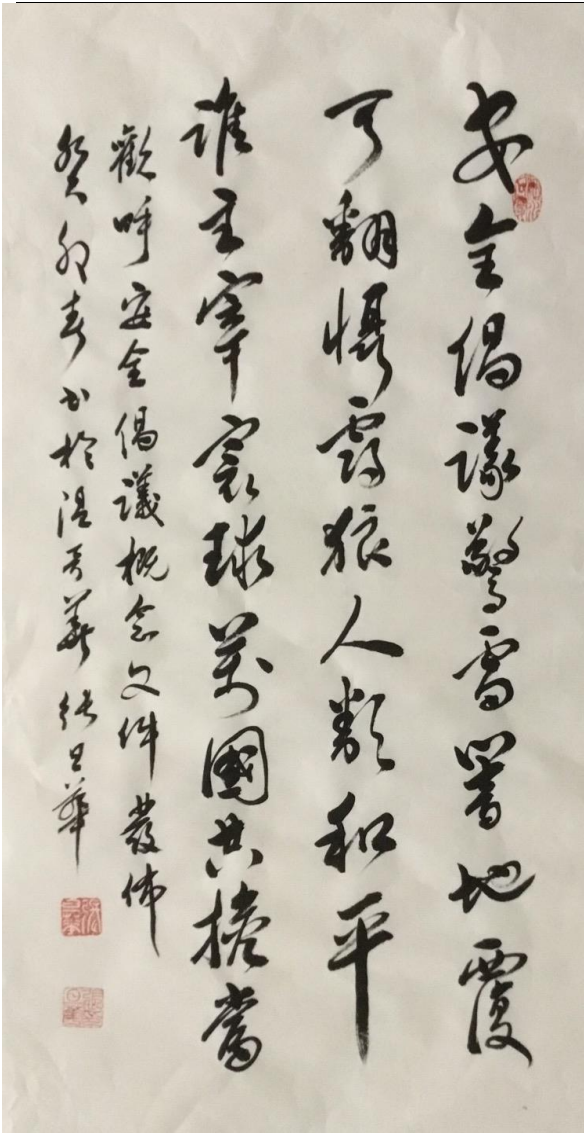 安全倡議驚雷響地覆
天翻懾霸狼人類和平
誰主宰寰球萬國共擔當
歡呼安全倡議概念文件發佈
癸卯春書於溫哥華 張日華